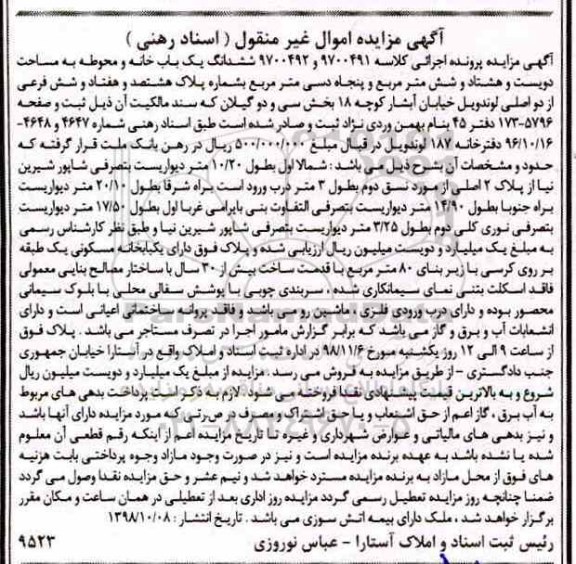 آگهی مزایده اموال غیر منقول ( اسناد رهنی )
آگهی مزایده پرونده اجرائی کلاسه ۹۷۰۰۴۹۱ و ۹۷۰۰۴۹۲ ششدانگ یک باب خانه و محوطه به مساحت
دویست و هشتاد و شش متر مربع و پنجاه دسی متر مربع بشماره پلاک هشتصد و هفتاد و شش فرعی
از دو اصلی لوندویل خیابان آبشار کوچه ۱۸ بخش سی و دو گیلان که سند مالکیت آن ذیل ثبت و صفحه
۱۷۳-۵۷۹۶ دفتر ۴۵ بنام بهمن وردی نژاد ثبت و صادر شده است طبق اسناد رهنی شماره ۴۶۴۷ و ۴۶۴۸-
۹۶/۱۰/۱۶ دفترخانه ۱۸۷ لوندویل در قبال مبلغ ۵۰۰/۰۰۰/۰۰۰ ریال در رهن بانک ملت قرار گرفته که
حدود و مشخصات آن بشرح ذیل می باشد : شمالا اول بطول ۱۰/۲۰ متر دیواریست بتصرفی شاپور شیرین
نیا از پلاک ۲ اصلی از مورد نسق دوم بطول ۳ متر درب ورود است براه شرقا بطول ۲۰/۱۰ متر دیواریست
براه جنوبا بطول ۱۴/۹۰ متر دیواریست بتصرفی التفاوت بنی بایرامی غربا اول بطول ۱۷/۵۰ متر دیواریست
بتصرفی نوری کلی دوم بطول ۳/۲۵ متر دیواریست بتصرفی شاپور شیرین نیا و طبق نظر کارشناس رسمی
به مبلغ یک میلیارد و دویست میلیون ریال ارزیابی شده و پلاک فوق دارای یکبابخانه مسکونی یک طبقه
بر روی کرسی با زیر بنای ۸۰ متر مربع با قدمت ساخت بیش از ۳۰ سال با ساختار مصالح بنایی معمولی
فاقد اسکلت بتنی نمای سیمانکاری شده ، سربندی چوبی با پوشش سفالی محلی با بلوک سیمانی
محصور بوده و دارای درب ورودی فلزی ، ماشین رو می باشد و فاقد پروانه ساختمانی اعیانی است و دارای
انشعابات آب و برق و گاز می باشد که برابر گزارش مامور اجرا در تصرف مستاجر می باشد . پلاک فوق
از ساعت ۹ الی ۱۲ روز یکشنبه مورخ ۹۸/۱۱/۶ در اداره ثبت اسناد و املاک واقع در آستارا خیابان جمهوری
جنب دادگستری – از طریق مزایده به فروش می رسد . مزایده از مبلغ یک میلیارد و دویست میلیون ریال
شروع و به بالاترین قیمت پیشنهادی نقدا فروخته می شود . لازم به ذکر است پرداخت بدهی های مربوط
به آب برق ، گاز اعم از حق انشعاب و یا حق اشتراک و مصرف در صورتی که مورد مزایده دارای آنها باشد
و نیز بدهی های مالیاتی و عوارض شهرداری و غیره تا تاریخ مزایده اعم از اینکه رقم قطعی آن معلوم
شده یا نشده باشد به عهده برنده مزایده است و نیز در صورت وجود مازاد وجوه پرداختی بابت هزینه
های فوق از محل مازاد به برنده مزایده مسترد خواهد شد و نیم عشر و حق مزایده نقدا وصول می گردد
ضمنا چنانچه روز مزایده تعطیل رسمی گردد مزایده روز اداری بعد از تعطیلی در همان ساعت و مکان مقرر
برگزار خواهد شد ، ملک دارای بیمه اتش سوزی می باشد . تاریخ انتشار : ۱۳۹۸/۱۰/۰۸
رئیس ثبت اسناد و املاک آستارا – عباس نوروزی ۹۵۲۳